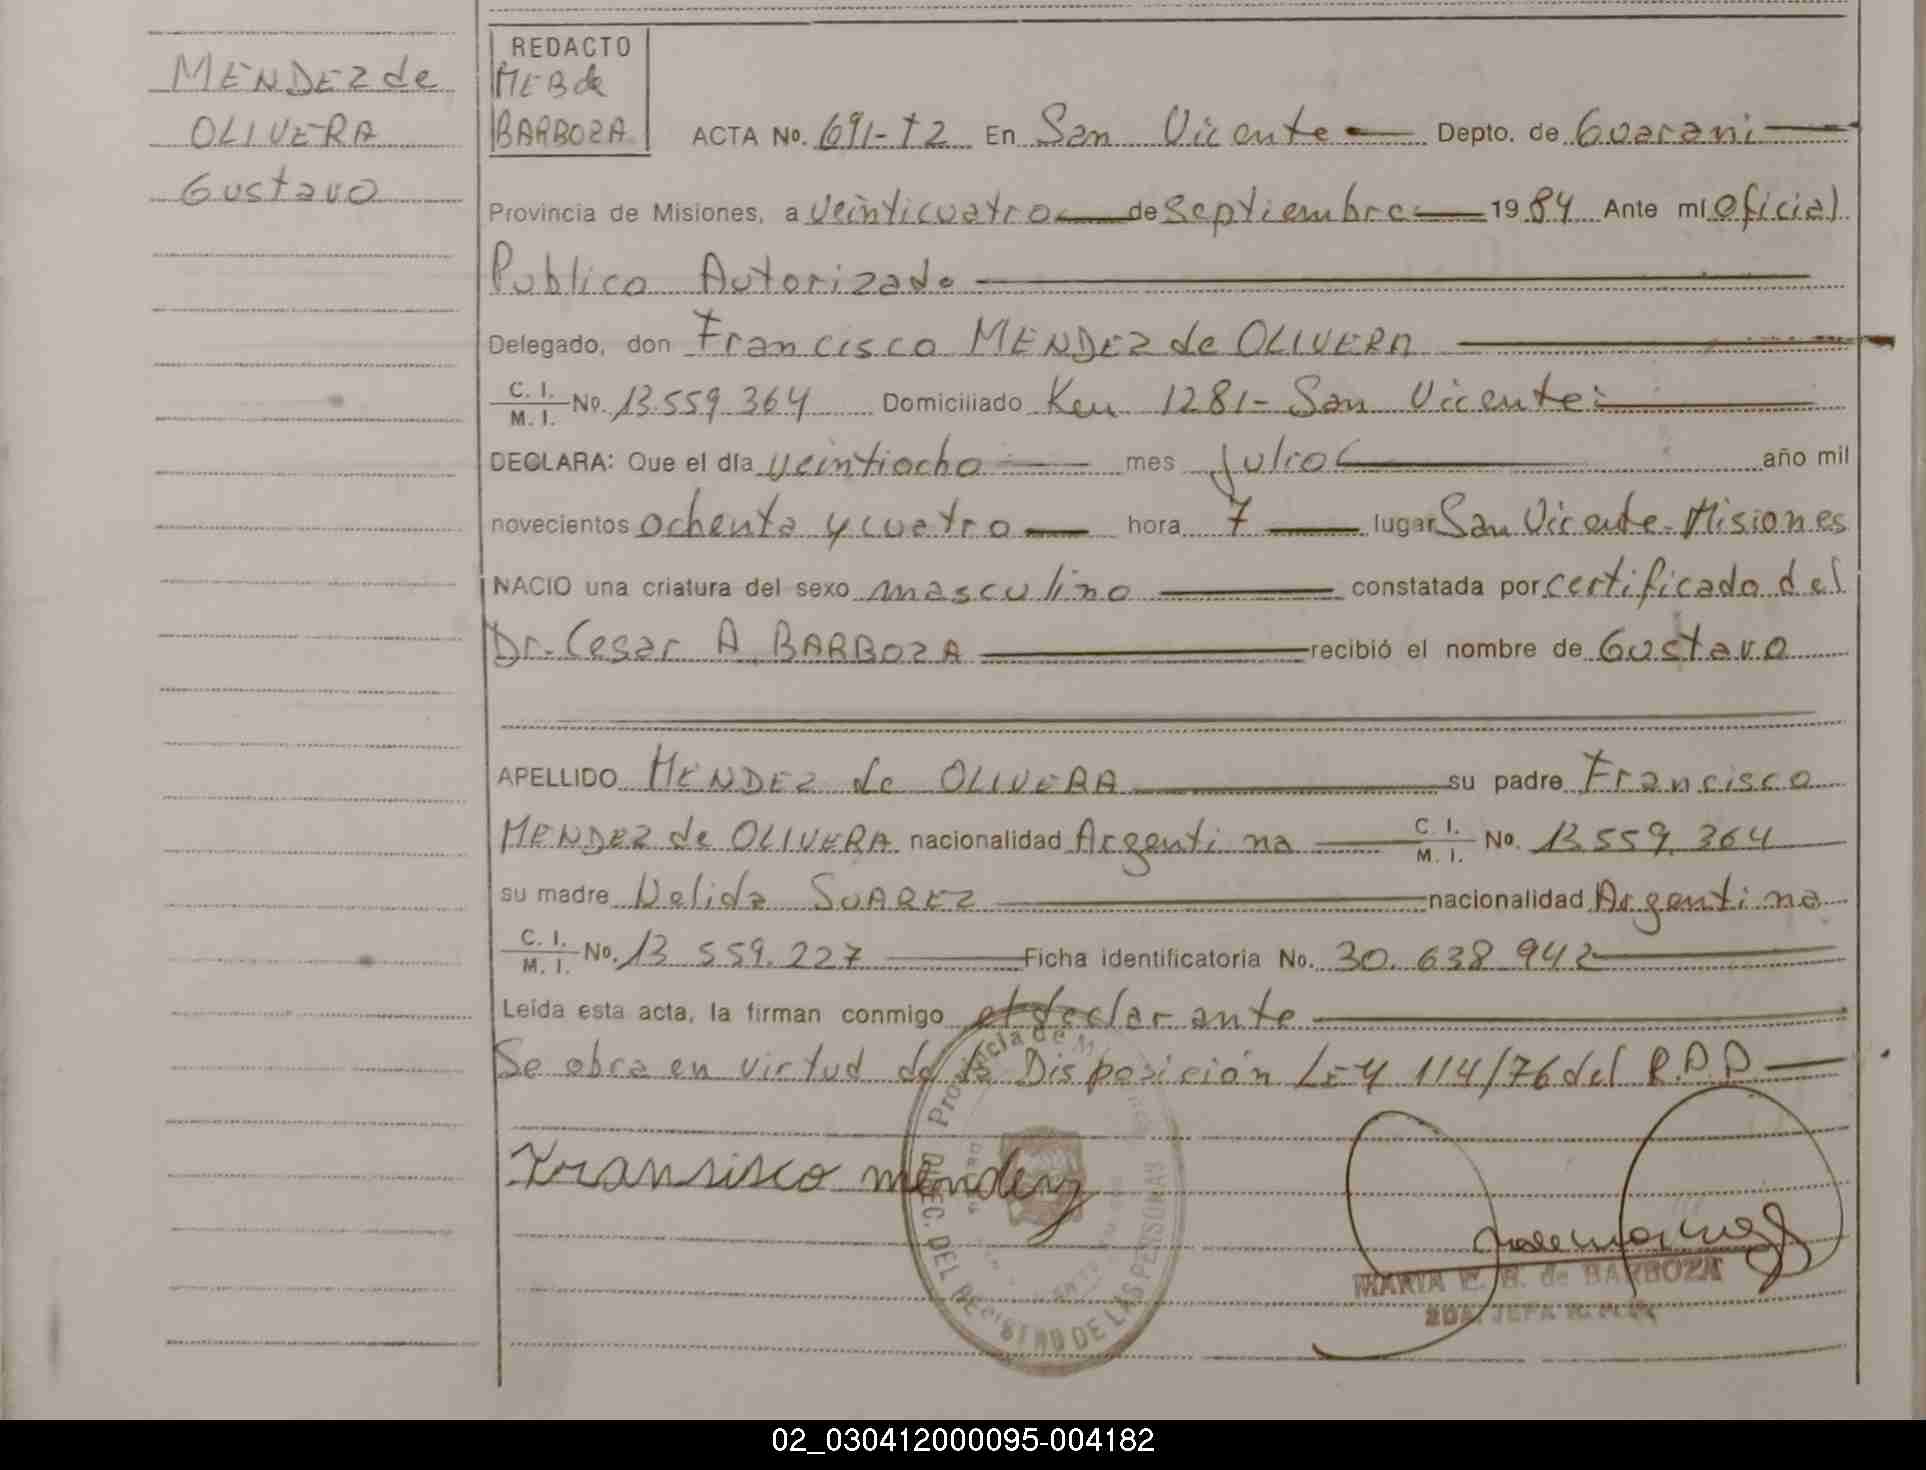 MENDEZ de
OLIVERA
Gustavo
REDACTO
MEB de
BARBOZA
ACTA No. 691-T2 En San Vicente Depto. de Guarani
Provincia de Misiones, a veinticuatro de septiembre 1984 Ante mí Oficial
Publico Autorizado
Delegado, don Francisco MENDEZ de OLIVERA
C. I. M. I. No. 13.559.364 Domiciliado Km 1281- San Vicente
DECLARA: Que el día veintiocho mes julio año mil
novecientos ochenta y cuatro hora 7 lugar San Vicente- Misiones
NACIO una criatura del sexo masculino constatada por certificado del
Dr. Cesar A. BARBOZA recibió el nombre de Gustavo
APELLIDO MENDEZ de OLIVERA su padre Francisco
MENDEZ de OLIVERA nacionalidad Argentina C. I. M. I. No. 13.559.364
su madre Nelida SUAREZ nacionalidad Argentina
C. I. M. I. No. 13.559.227 Ficha identificatoria No. 30.638.942
Leída esta acta, la firman conmigo el declarante
Se obra en virtud de la Disposición LEY 114/76 del R.P.P
Provincia de
DIREC. DEL REGISTRO DE LAS PERSONAS
Fransisco mendez
MARIA E. B. de BARBOZA
2DA. JEFA
02_030412000095-004182